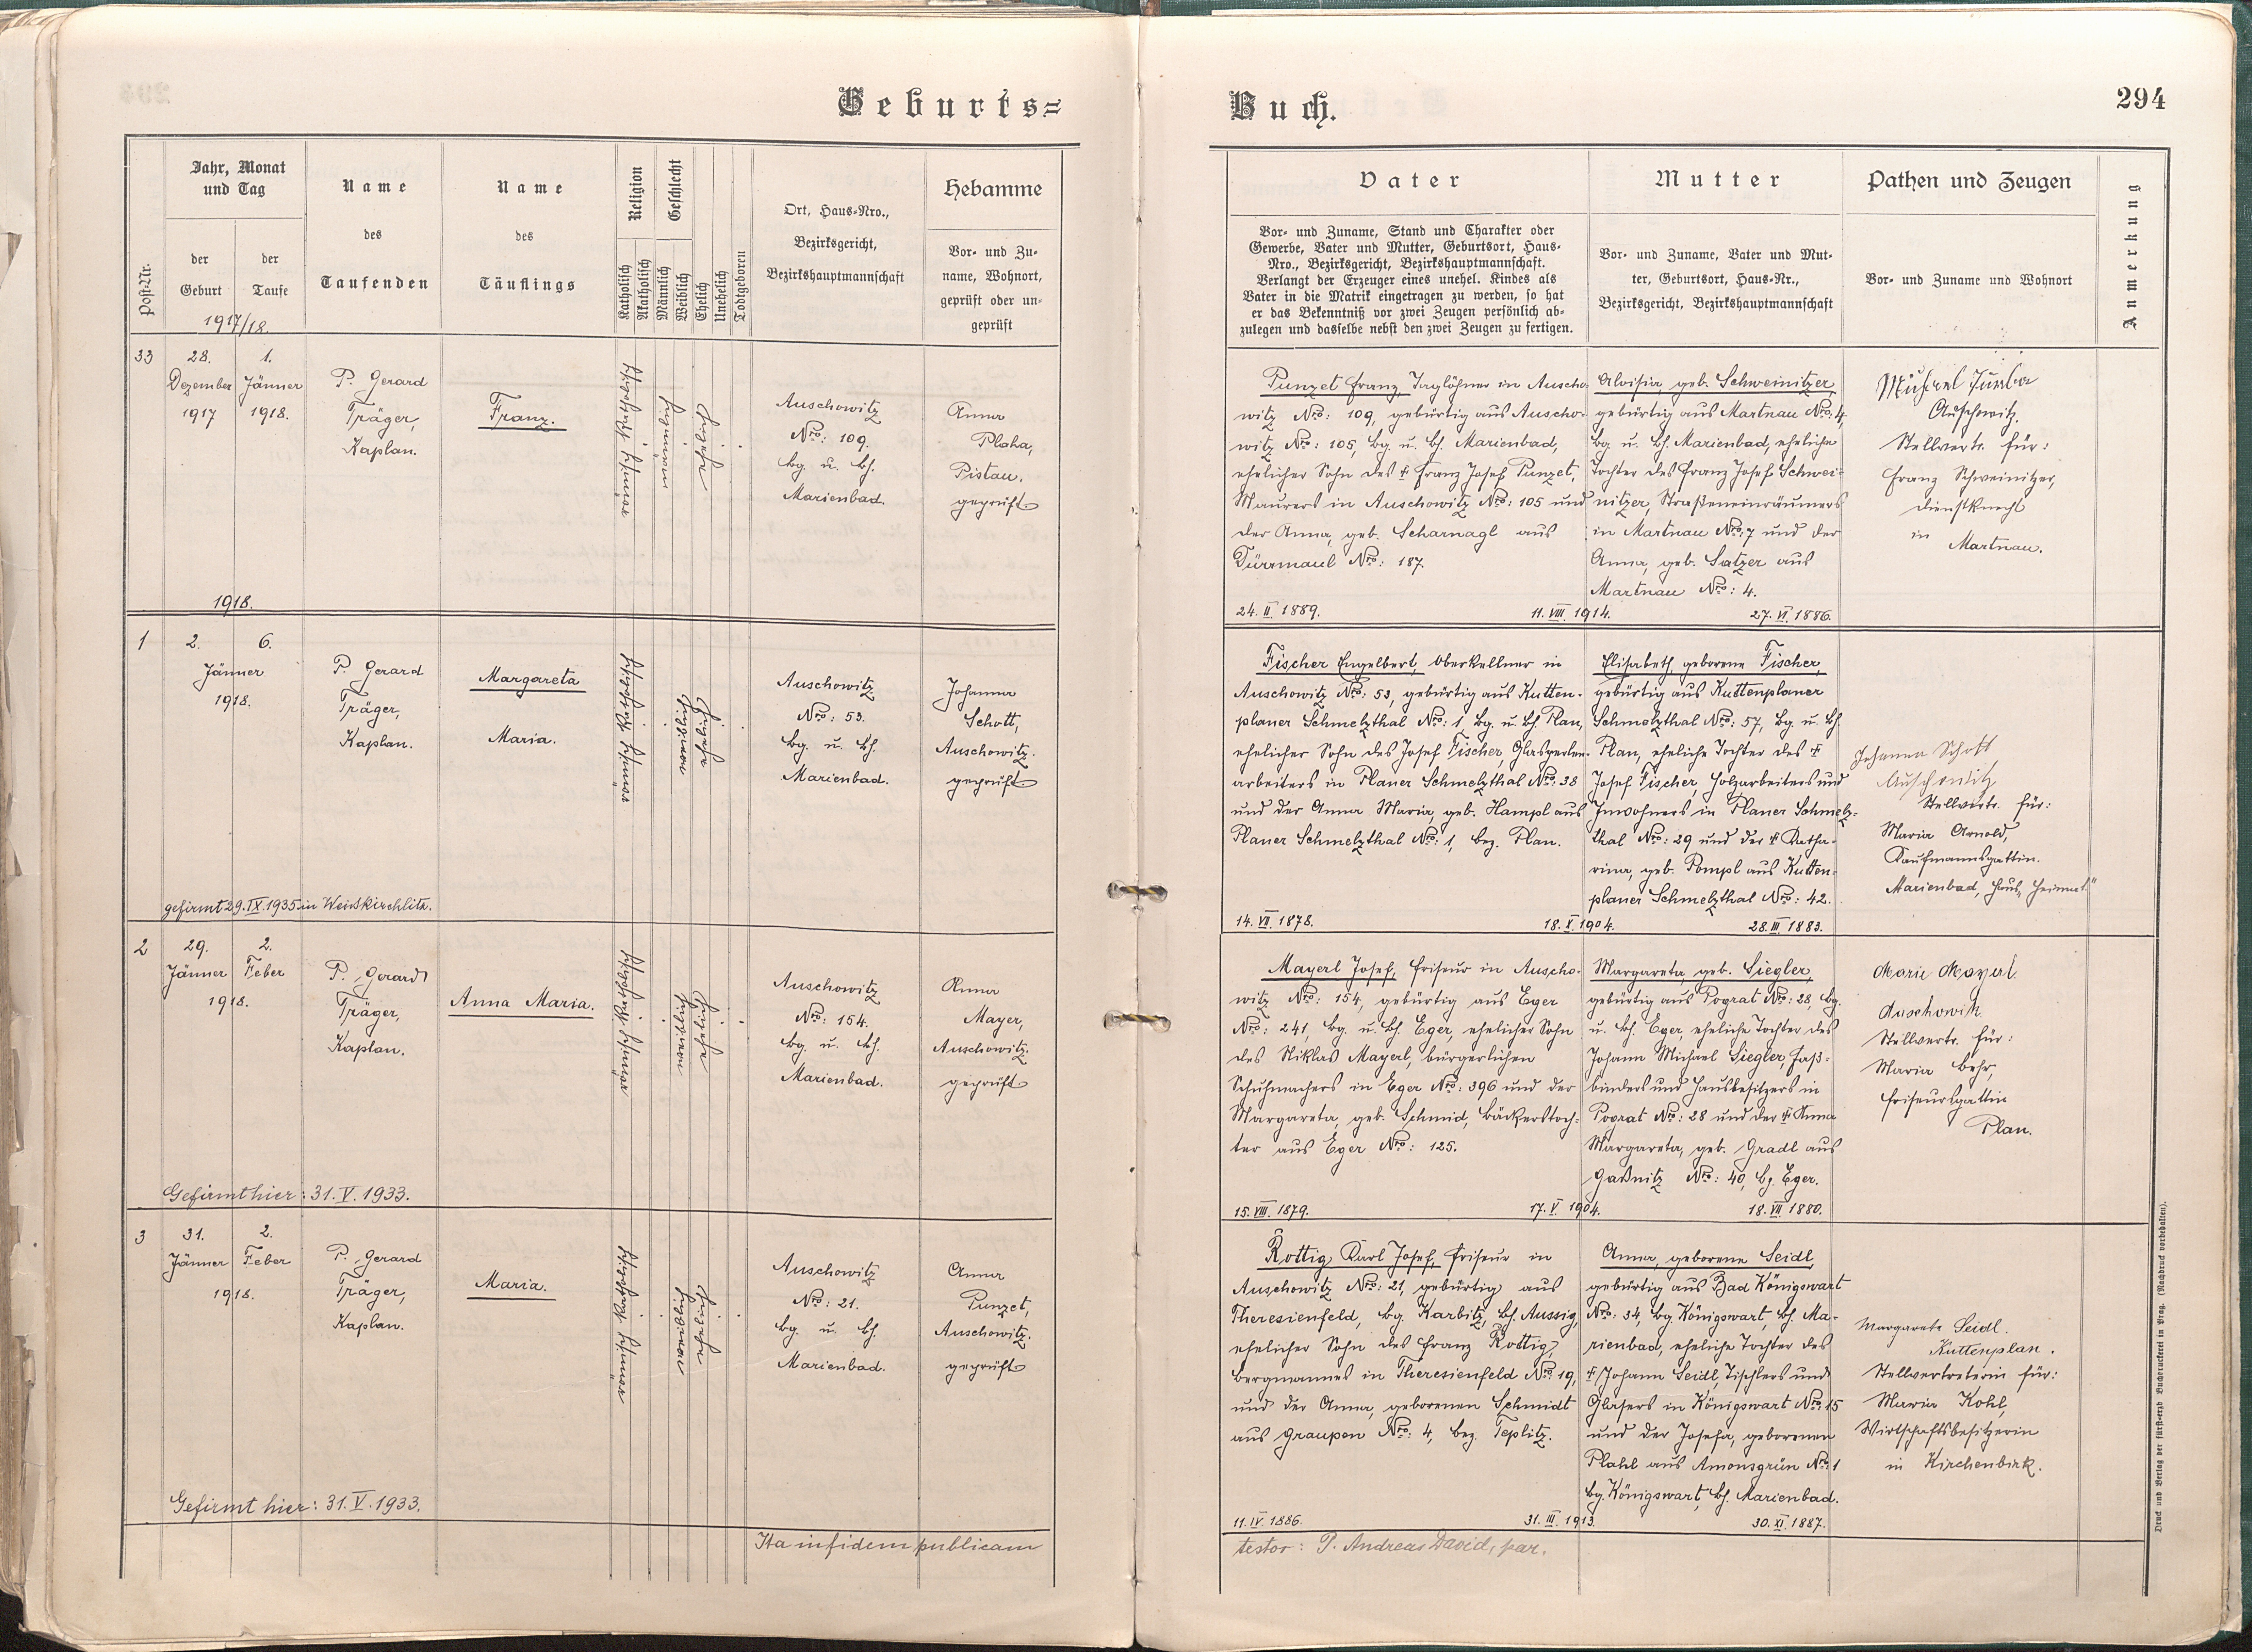 Geburts=
Jahr, Monat
und Tag
der
Geburt
der
Taufe
Post-Nr.
Name
des
Taufenden
Name
des
Täuflings
Religion
Katholisch
Akatholisch
Geschlecht
Männlich
Weiblich
Ehelich
Unehelich
Todtgeboren
Ort, Haus=Nro.,
Bezirksgericht,
Bezirkshauptmannschaft
Hebamme
Vor= und Zu=
name, Wohnort,
geprüft oder un=
geprüft
1917/18.
33
28.
Dezember
1917
1.
Jänner
1918.
P. Gerard
Träger,
Kaplan.
Franz.
Auschowitz
Nro: 109.
bg. u. bh.
Marienbad.
Anna
Plaha,
Pistau.
geprüft
1918.
1
2.
6.
Jänner
1918.
P. Gerard
Träger,
Kaplan.
Margareta
Maria.
Auschowitz
Nro: 53.
bg. u. bh.
Marienbad.
Johanna
Schott,
Auschowitz.
geprüft
gefirmt 29.IX.1935 in Weisskirchlitz.
2
29.
2.
Jänner
Feber
1918.
P. Gerard
Träger,
Kaplan.
Anna Maria.
Auschowitz
Nro: 154.
bg. u. bh.
Marienbad.
Anna
Mayer,
Auschowitz.
geprüft
Gefirmt hier: 31. V. 1933.
3
31.
2.
Jänner
Feber
1918.
P. Gerard
Träger,
Kaplan.
Maria.
Auschowitz
Nro: 21.
bg. u. bh.
Marienbad.
Anna
Punzet,
Auschowitz.
geprüft
Gefirmt hier: 31. V. 1933.
Ita in fidem publicam
Buch.
294
Vater
Vor= und Zuname, Stand und Charakter oder
Gewerbe, Vater und Mutter, Geburtsort, Haus=
Nro., Bezirksgericht, Bezirkshauptmannschaft.
Verlangt der Erzeuger eines unehel. Kindes als
Vater in die Matrik eingetragen zu werden, so hat
er das Bekenntniß vor zwei Zeugen persönlich ab=
zulegen und dasselbe nebst den zwei Zeugen zu fertigen.
Mutter
Vor= und Zuname, Vater und Mut=
ter, Geburtsort, Haus=Nr.,
Bezirksgericht, Bezirkshauptmannschaft
Pathen und Zeugen
Vor= und Zuname und Wohnort
Anmerkung
Punzet Franz, Taglöhner in Auscho=
witz Nro: 109, gebürtig aus Auscho=
witz Nro: 105, bg. u. bh. Marienbad,
ehelicher Sohn des † Franz Josef Punzet,
Maurers in Auschowitz Nro: 105 und
der Anna, geb. Scharnagl aus
Dürrmaul Nro: 187.
24. II. 1889.
11. VIII. 1914.
Aloisia, geb. Schweinitzer,
gebürtig aus Martnau Nro: 4,
bg. u. bh. Marienbad, eheliche
Tochter des Franz Josef Schwei=
nitzer, Straßeneinräumers
in Martnau Nro: 7 und der
Anna, geb. Satzer aus
Martnau Nro: 4.
27. VI. 1886.
Auschowitz.
Stellvertr. für:
Franz Schweinitzer,
Dienstknecht
in Martnau.
Fischer Engelbert, Oberkellner in
Auschowitz Nro: 53, gebürtig aus Kutten=
planer Schmelzthal Nro: 1, bg. u. bh. Plan,
ehelicher Sohn des Josef Fischer, Glasperlen=
arbeiters in Planer Schmelzthal Nro: 38
und der Anna Maria, geb. Hampl aus
Planer Schmelzthal Nro: 1, bez. Plan.
14. VII. 1878.
18. X. 1904.
Elisabeth, geborene Fischer,
gebürtig aus Kuttenplaner
Schmelzthal Nro: 57, bg. u. bh.
Plan, eheliche Tochter des †
Josef Fischer, Holzarbeiters und
Inwohners in Planer Schmelz=
thal Nro: 29 und der † Katha=
rina, geb. Pompl aus Kutten=
planer Schmelzthal Nro: 42.
28. III. 1883.
Johanna Schott
Auschowitz
Stellvertr. für:
Maria Arnold,
Kaufmannsgattin.
Marienbad, Haus „Heimat"
Mayerl Josef, Friseur in Auscho=
witz Nro: 154, gebürtig aus Eger
Nro: 241, bg. u. bh. Eger, ehelicher Sohn
des Niklas Mayerl, bürgerlichen
Schuhmachers in Eger Nro: 396 und der
Margareta, geb. Schmid, Bäckerstoch=
ter aus Eger Nro: 125.
15. VIII. 1879.
17. V. 1904.
Margareta, geb. Siegler,
gebürtig aus Pograt Nro: 28, bg.
u. bh. Eger, eheliche Tochter des
Johann Michael Siegler, Faß=
binders und Hausbesitzers in
Pograt Nro: 28 und der † Anna
Margareta, geb. Gradl aus
Gaßnitz Nro: 40, bz. Eger.
18. VII. 1880.
Marie Mayerl
Auschowitz.
Stellvertr. für:
Maria Behr,
Friseursgattin
Plan.
Rottig Karl Josef, Friseur in
Auschowitz Nro: 21, gebürtig aus
Theresienfeld, bg. Karbitz, bh. Aussig,
ehelicher Sohn des Franz Rottig,
Bergmannes in Theresienfeld Nro: 19,
und der Anna, geborenen Schmidt
aus Graupen Nro: 4, bez. Teplitz.
11. IV. 1886.
31. III. 1913.
Anna, geborene Seidl,
gebürtig aus Bad Königswart
Nro: 34, bg. Königswart, bh. Ma=
rienbad, eheliche Tochter des
† Johann Seidl, Tischlers und
Glasers in Königswart Nro: 15
und der Josefa, geborenen
Plahl aus Amonsgrün Nro: 1
bg. Königswart, bh. Marienbad.
30. XI. 1887.
Margarete Seidl.
Kuttenplan.
Stellvertreterin für:
Maria Kohl,
Wirtschaftsbesitzerin
in Kirchenbirk.
testor: P. Andreas David, par.
Druck und Verlag der fürst=erzb Buchdruckerei in Prag. (Nachdruck vorbehalten).